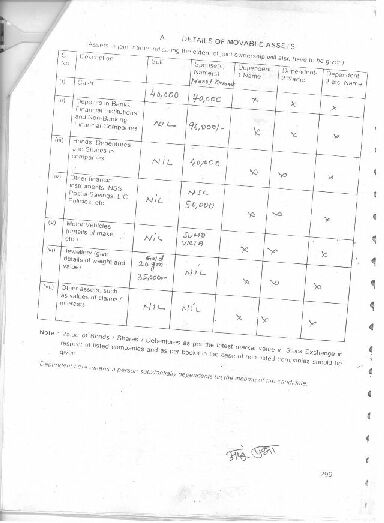 A. DETAILS OF MOVABLE ASSETS
Assets in joint name indicating the extent of joint ownership will also have to be given
S. No. Description Self Spouse(s) Name(s) Dependent-1 Name Dependent-2 Name Dependent-3 etc. Name
(i) Cash 40,000 40,000 x x x
(ii) Deposits in Banks, Financial Institutions and Non-Banking Financial Companies NIL 90,000/- x x x
(iii) Bonds, Debentures and Shares in companies NIL 40,000 x x x
(iv) Other financial instruments NSS, Postal Savings, LIC Policies, etc. NIL NIL 50,000 x x x
(v) Motor Vehicles (details of make, etc.) NIL x x x
(vi) Jewellery (give details of weight and value) Gold 20 gm 35,000/- NIL x x x
(vii) Other assets, such as values of claims / interests NIL NIL x x x
Note : Value of Bonds / Shares / Debentures as per the latest market value in Stock Exchange in
respect of listed companies and as per books in the case of non-listed companies should be
given.
Dependent here means a person substantially dependents on the income of the candidate.